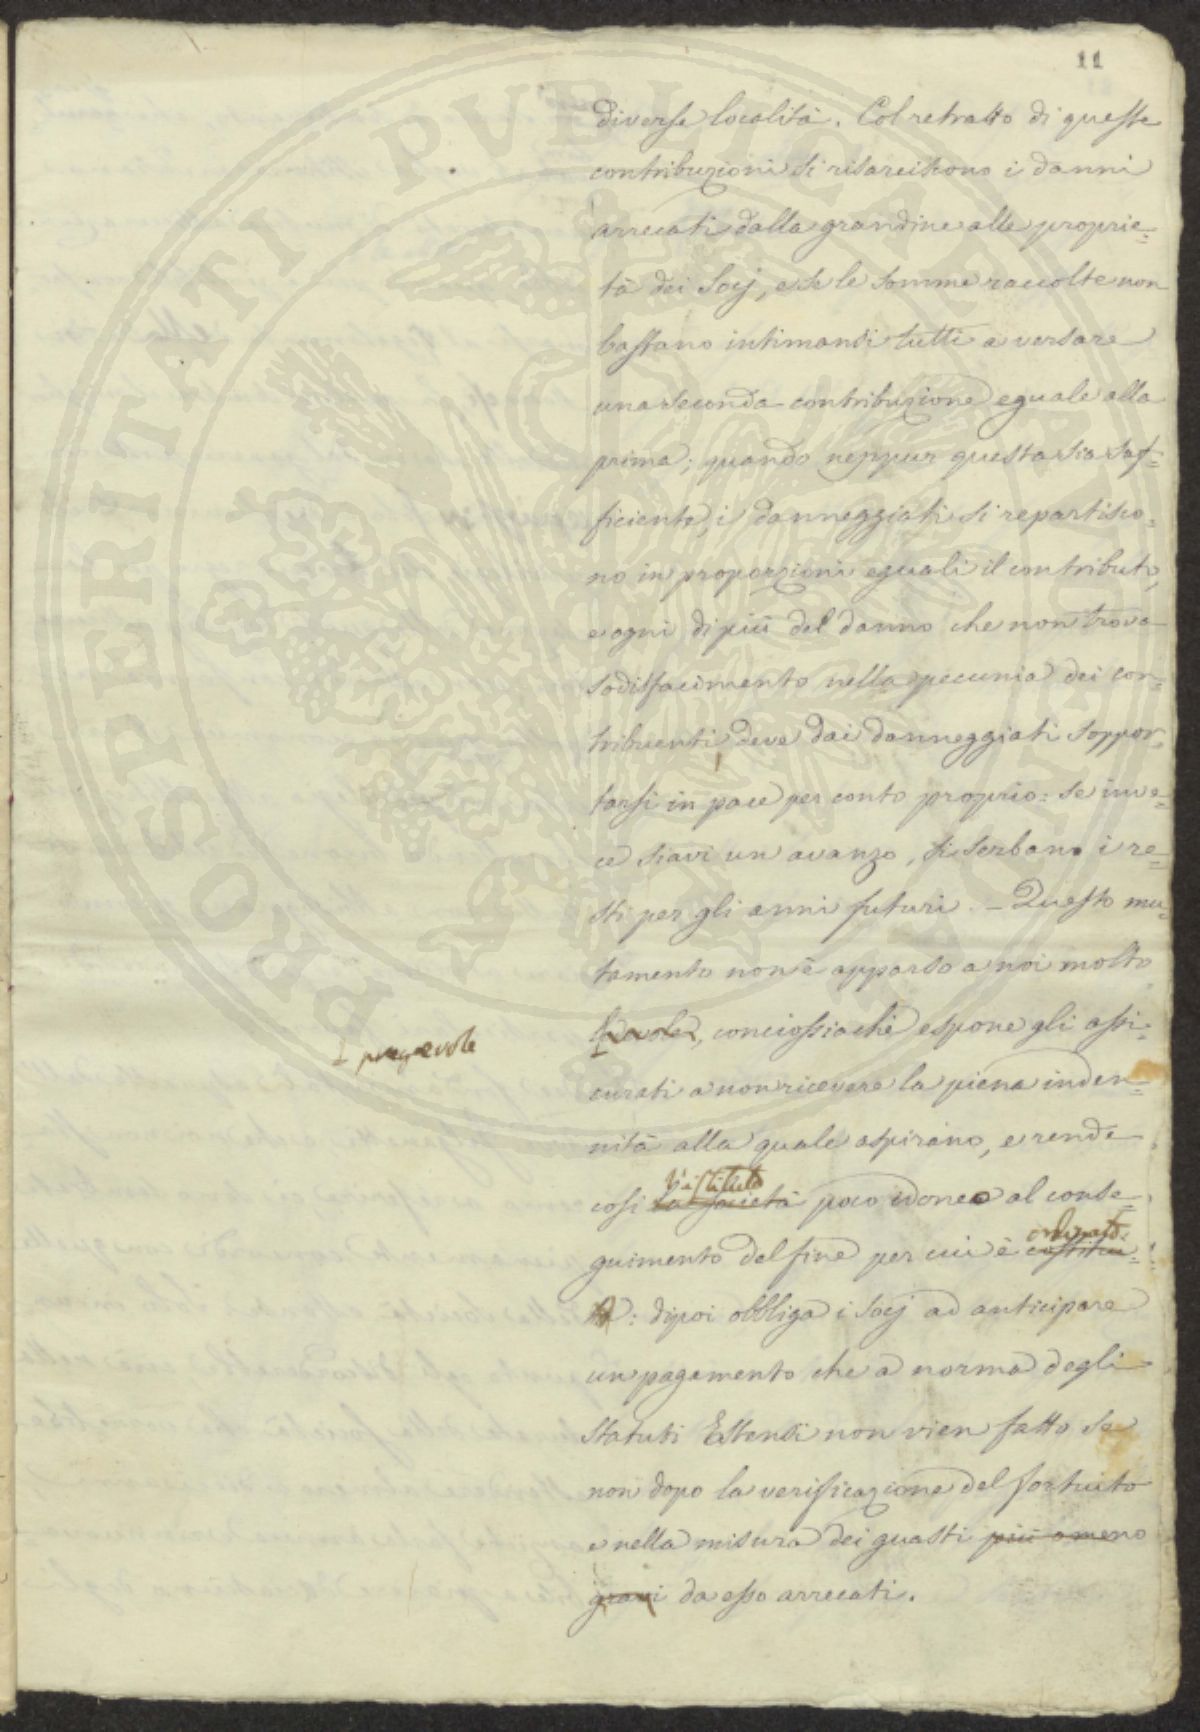 11
diverse località. Col retratto di queste
contribuzioni si risarciscono i danni
arrecati dalla grandine alle proprie=
tà dei Socj, e se le somme raccolte non
bastano intimansi tutti a versare
una seconda contribuzione eguale alla
prima; quando neppur questa sia suf=
ficiente, i danneggiati si repartisco=
no in proporzioni eguali il contributo,
e ogni di più del danno che non trova
sodisfacimento nella pecunia dei con=
tribuenti deve dai danneggiati soppor=
tarsi in pace per conto proprio: se inve=
ce siavi un avanzo, si serbano i re=
sti per gli anni futuri. - Questo mu=
tamento non è apparso a noi molto
pregevole
, conciossiachè espone gli assi=
curati a non ricevere la piena inden=
nità alla quale aspirano, e rende
l'istituto
così la società poco idoneo al conse=
ordinato
guimento del fine per cui è costitui=
ta: dipoi obbliga i Socj ad anticipare
un pagamento che a norma degli
Statuti Estensi non vien fatto se
non dopo la verificazione del fortuito
e nella misura dei guasti più o meno
gravi da esso arrecati.
PROSPERITATI PUBLICAE